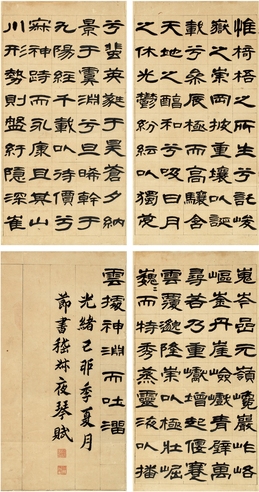 惟椅梧之所生兮託峻
嶽之崇岡披重壤以誕
載兮參辰極而高驤含
天地之醇和兮吸日月
之休光鬱紛紜以獨茂
兮蜚英蕤于昊蒼夕納
景于虞淵兮旦晞幹于
九陽經千載以待價兮
寂神跱而永康且其山
川形勢則盤紆隱深崔
嵬岑嵒亢嶺巉巖岞峈
嶇崟丹崖嶮巇青壁萬
尋若乃重巘增起偃蹇
雲覆邈隆崇以極壯崛
巍〻而特秀蒸靈液以播
雲據神淵而吐溜
光緒己卯季夏月
節書嵇叔夜琴賦